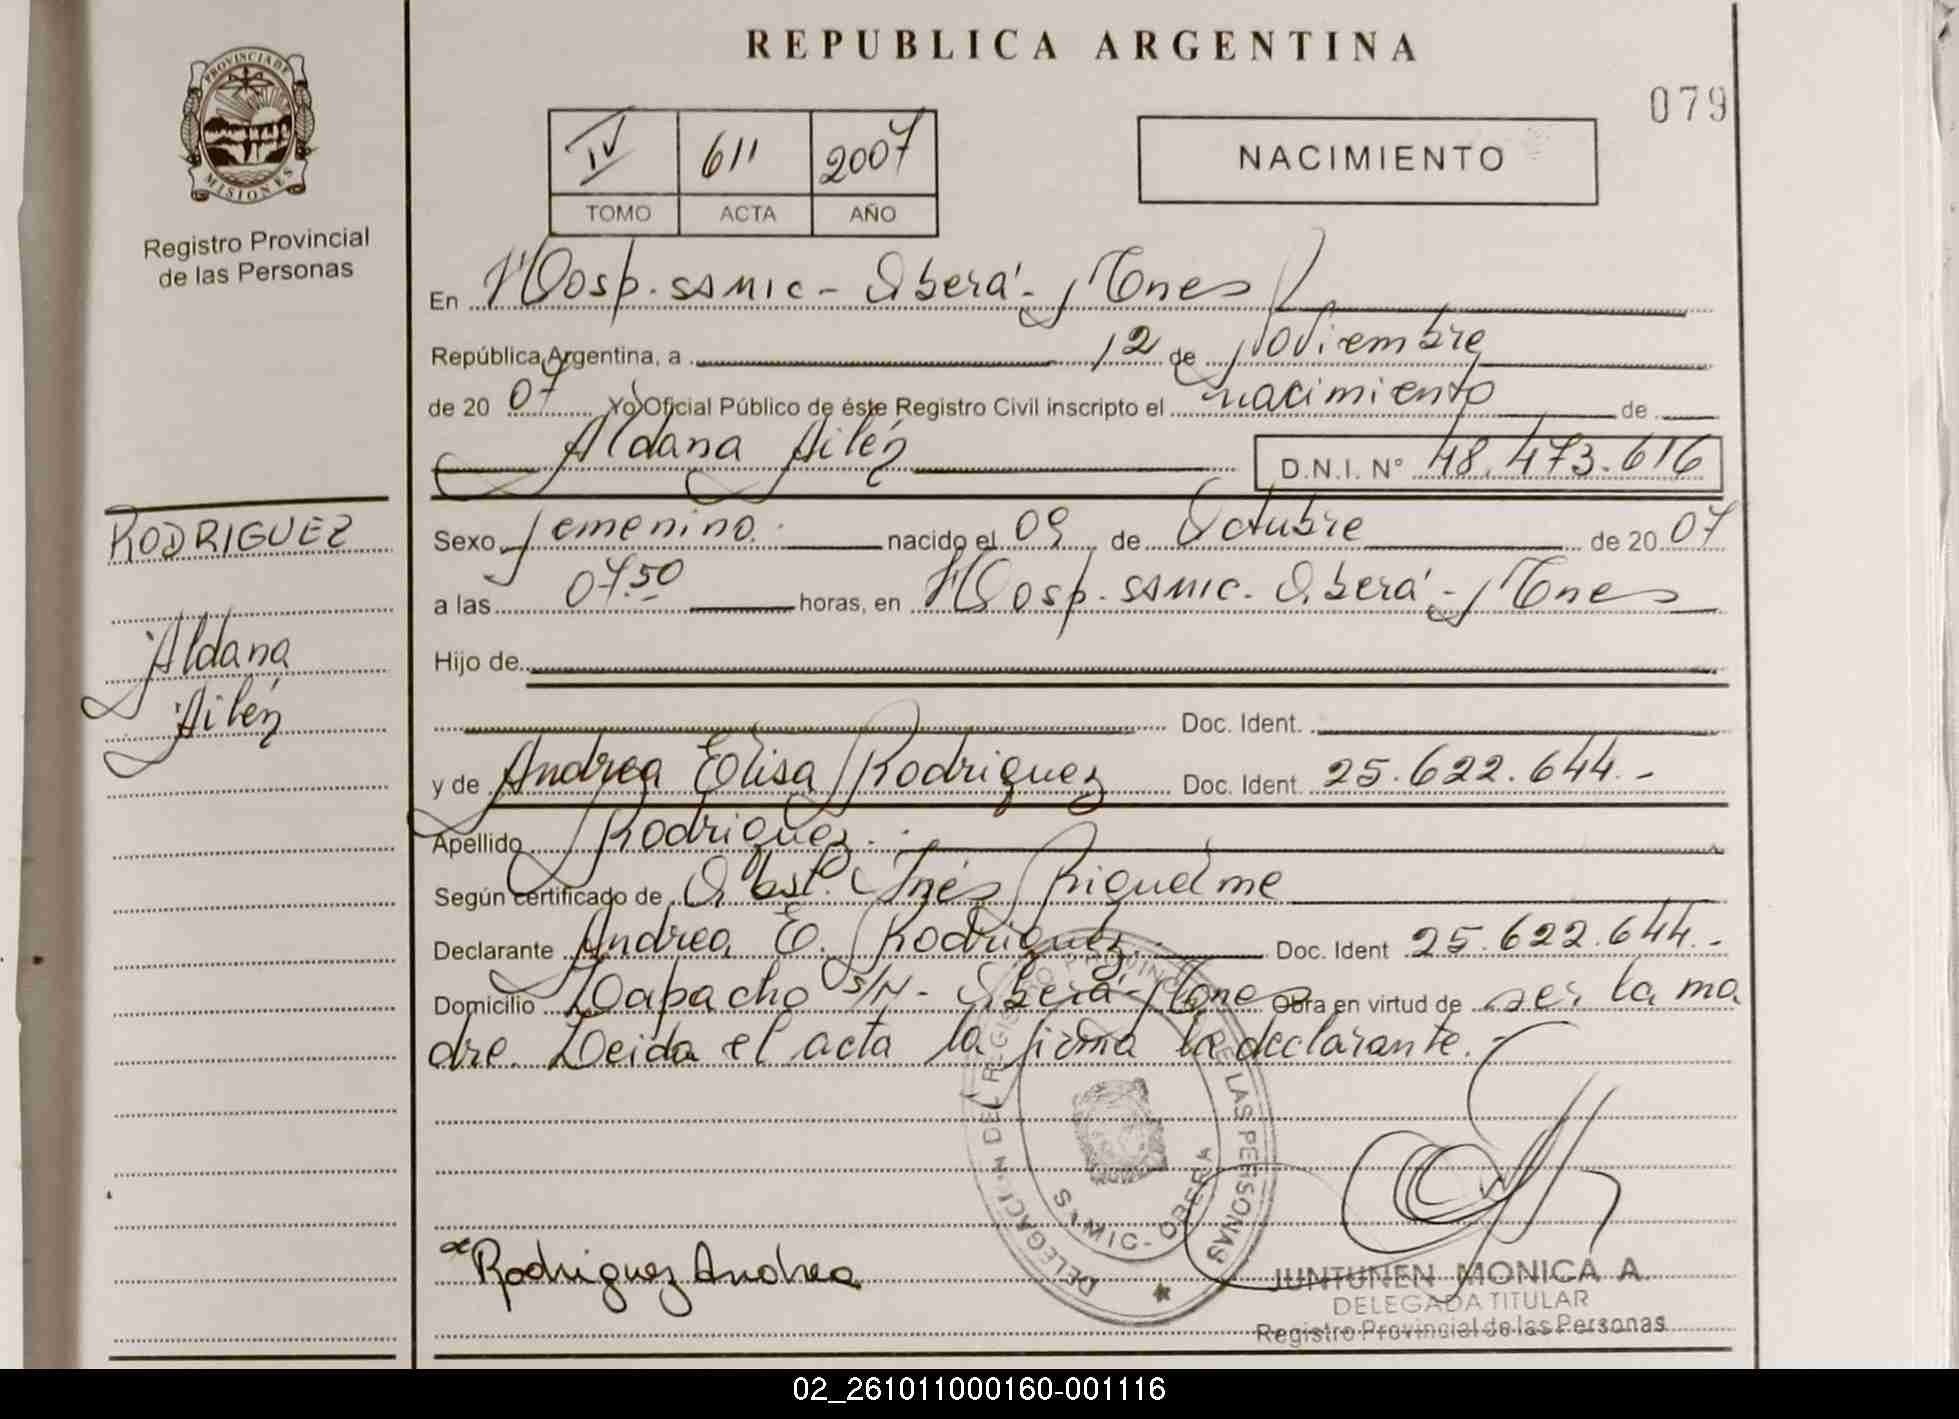 REPUBLICA ARGENTINA
079
PROVINCIA DE
MISIONES
Registro Provincial
de las Personas
IV 611 2007
TOMO ACTA AÑO
NACIMIENTO
En Hosp. SAMIC - Oberá - Mnes
República Argentina, a 12 de Noviembre
de 20 07 Yo Oficial Público de éste Registro Civil inscripto el nacimiento de
Aldana Ailén D.N.I. N° 48.473.616
RODRIGUEZ
Aldana
Ailén
Sexo femenino. nacido el 09 de Octubre de 20 07
a las 07.50 horas, en Hosp. SAMIC. Oberá - Mnes
Hijo de
Doc. Ident.
y de Andrea Elisa Rodriguez Doc. Ident. 25.622.644.-
Apellido Rodriguez.
Según certificado de Obst. Inés Riquelme
Declarante Andrea E. Rodriguez. Doc. Ident 25.622.644.-
Domicilio Lapacho S/N - Oberá - Mnes Obra en virtud de ser la ma
dre. Leida el acta la firma la declarante.-
DELEGACION DEL REGISTRO PROVINCIAL DE LAS PERSONAS
SAMIC - OBERA
Rodriguez Andrea
JUNTUNEN MONICA A.
DELEGADA TITULAR
Registro Provincial de las Personas
02_261011000160-001116